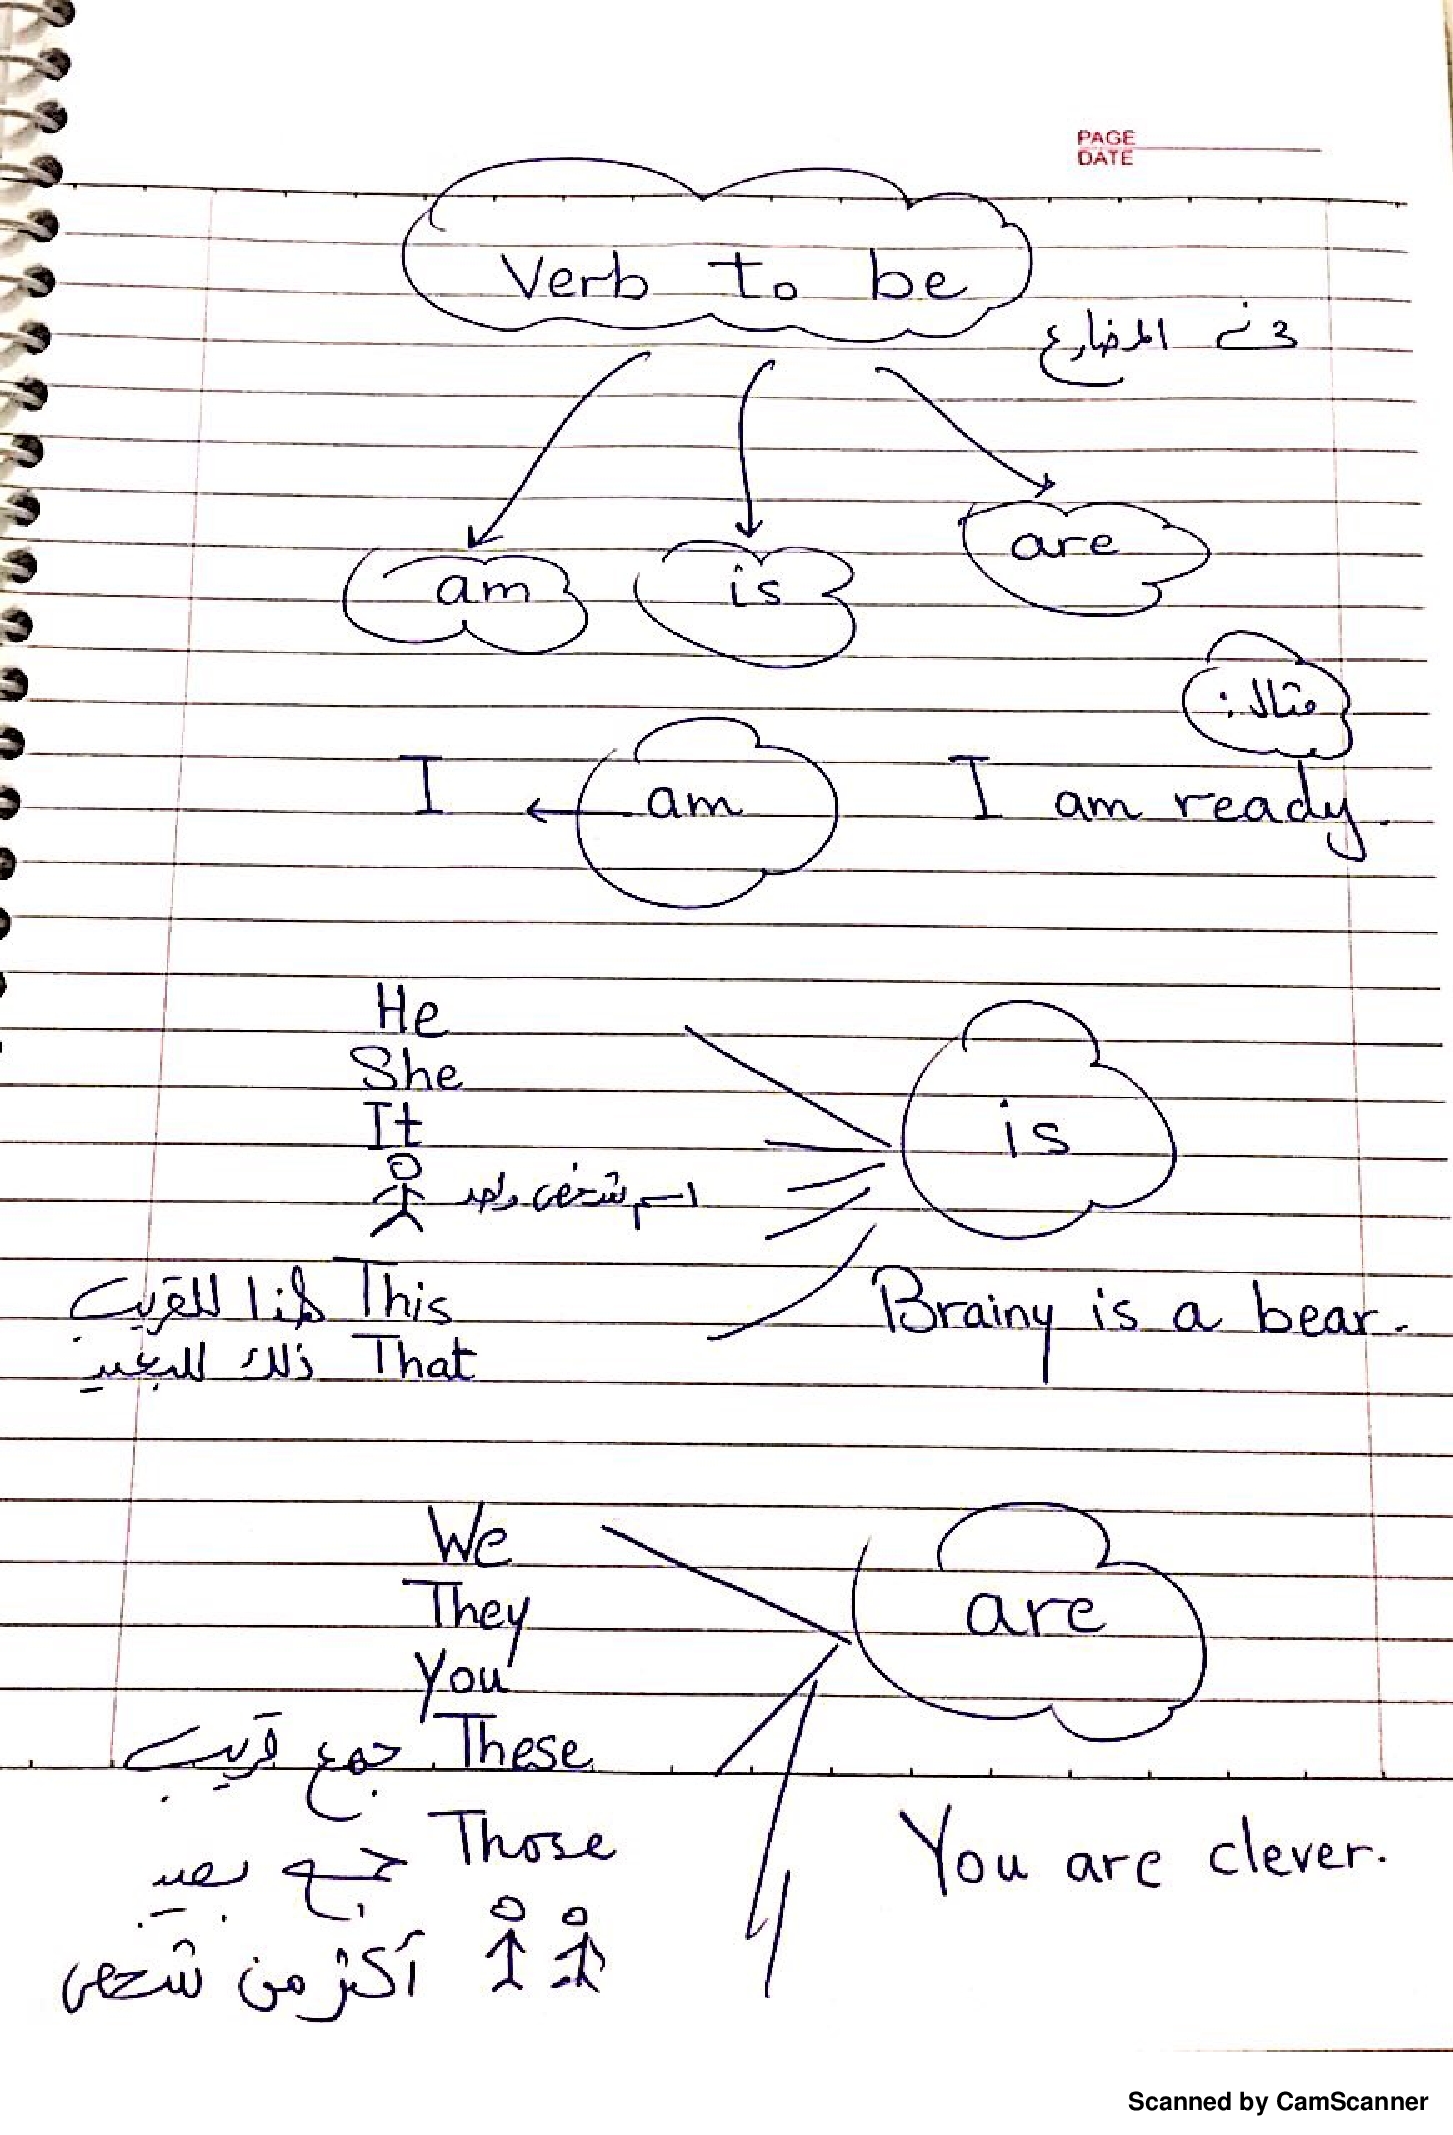 PAGE
DATE
Verb to be
في المضارع
am is are
مثال:
I am I am ready.
He
She
It
is
اسم شخص واحد
This هذا للقريب
Brainy is a bear.
That ذلك للبعيد
We
They
are
You
These جمع قريب
Those جمع بعيد
You are clever.
أكثر من شخص
Scanned by CamScanner